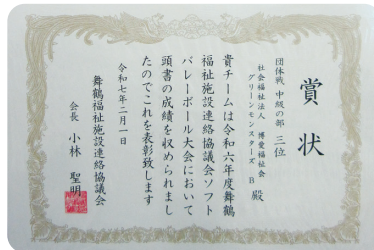 賞状
団体戦 中級の部 三位
社会福祉法人 博愛福祉会
グリーンモンスターズ B 殿
貴チームは令和六年度舞鶴
福祉施設連絡協議会ソフト
バレーボール大会において
頭書の成績を収められまし
たのでこれを表彰致します
令和七年二月一日
舞鶴福祉施設連絡協議会
会長 小林 聖明